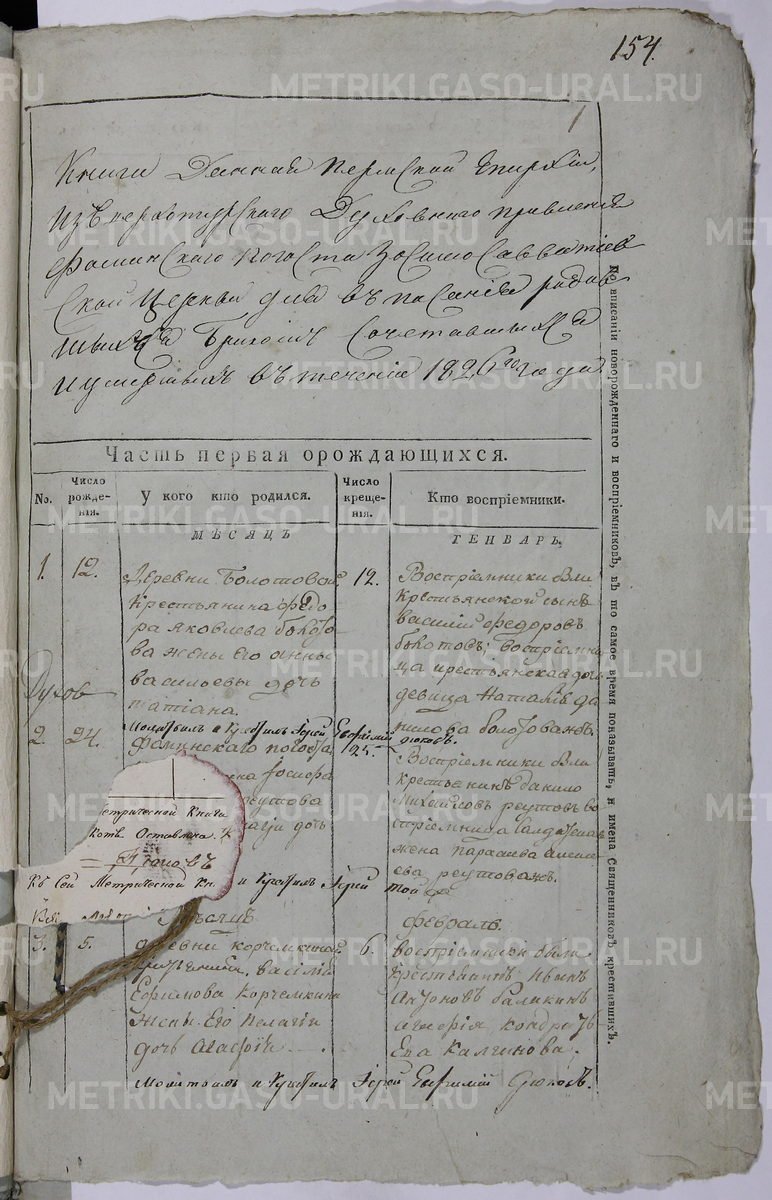 154.
1
Книга Данная Пермской Епархии,
изъ верхотурскаго Духовнаго правления
Фоминскаго погоста Зосимо Савватиев
ской Церкви для вписания родив
шихся Бракомъ Сочетавшихся
и умершихъ въ течении 1826го года
Часть первая орождающихся.
No.
Число рожде-нія.
У кого кто родился.
Число креще-нія.
Кто воспріемники.
МѢСЯЦЪ
ГЕНВАРЬ
1.
12.
Деревни Болотовой
крестьянина Федо
ра Яковлева болото
ва жены его анны
василевы дочь
татіана.
12.
Воспріемники были
крестьянской сынъ
василий федоровъ
болотовъ; воспріемни
ца крестьянская дочь
девица Наталья да
нилова болотовахъ.
Духов
Молитвилъ и крестилъ Іерей Евфимий Дюковъ.
2.
24.
Фоминскаго погоста
25.
Воспріемники были
крестьянинъ данило
Михайловъ реутовъ во
спріемница Салдатская
жена Парасева алексе
ева реутовахъ.
реутова
дочь
метрической Книги
Къ Сей Метрической Кн
и крестилъ Іерей Той же
Месяцъ
февраль.
3.
5.
деревни корчемкиной
василия
Ефимова корчемкина
жены Его Пелагии
дочь Агафия
6.
воспріемники были
крестьянинъ Иванъ
Антоновъ балакинъ
Кондратъ
Ева калгинова.
Молитвилъ и крестилъ Іерей Евфимий Дюковъ.
По вписаніи новорожденнаго и воспріемниковъ, въ то самое время показывать, и имена Священниковъ крестившихъ.
METRIKI.GASO-URAL.RU